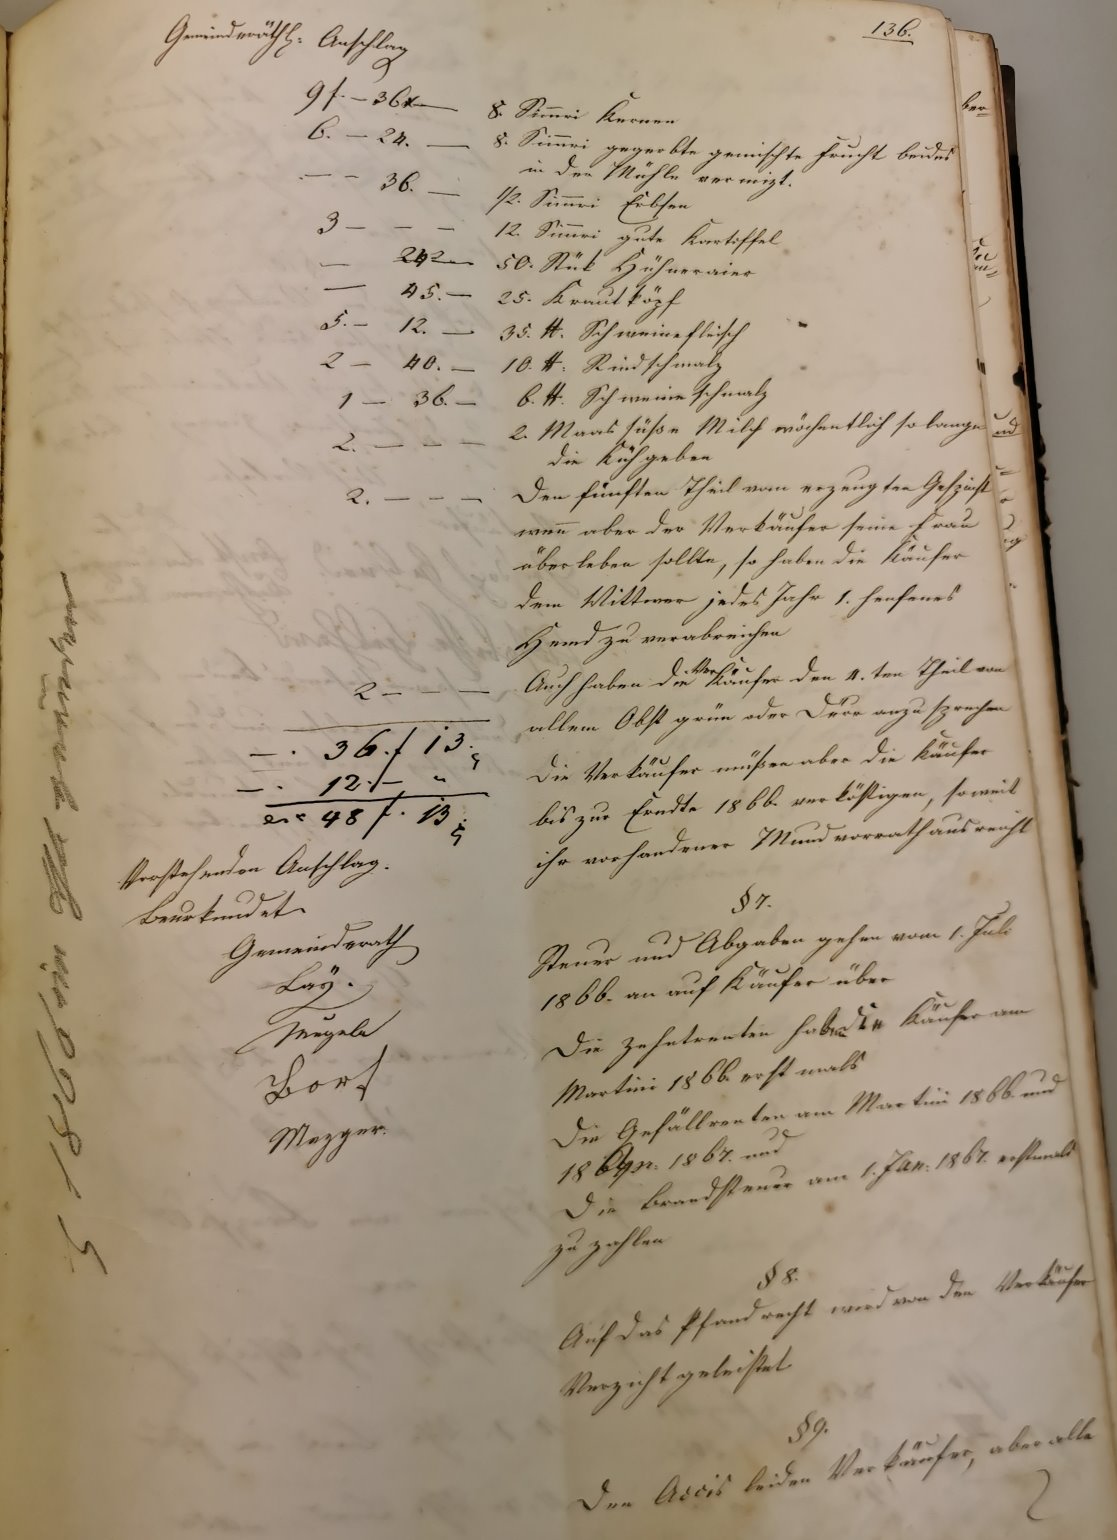 136.
Gemeinderäthl: Anschlag
9 f. — 36 x — 8. Simri Kernen
6. — 24. — 8. Simri gegerbte gemischte Frucht beides
in der Mühle vermizt.
— — 36. — 1/2. Simri Erbsen
3 — — — 12. Simri gute Kartoffel
— 242 — 50. Stük Hühneraier
— 45. — 25. Krautköpf
5. — 12. — 35. ℔. Schweinefleisch
2 — 40. — 10. ℔. Rindschmalz
1 — 36. — 6. ℔. Schweineschmalz
2. — — — 2. Maas süße Milch wöchentlich so lange
die Küh geben
2. — — — Den fünften Theil vom erzeugten Gespinst
wenn aber der Verkäufer seine Frau
überleben sollte, so haben die Käufer
dem Wittwer jedes Jahr 1. henfenes
Hemd zu verabreichen
2 — — — Auch haben die Verkäufer den 4.ten Theil von
allem Obst grün oder Dürr anzusprechen
— . 36. f 13.
— . 12. f — "
48 f. 13
Die Verkäufer müßen aber die Käufer
bis zur Erndte 1866. verköstigen, soweit
ihr vorhandener Mundvorrath ausreicht
Vorstehenden Anschlag.
Beurkundet
Gemeinderath
Lay.
Bort
Mezger.
§ 7.
Steuer und Abgaben gehen vom 1. Juli
1866. an auf Käufer über
Die Zehntrenten haben die Käufer am
Martini 1866. erstmals
Die Gefällrenten am Martini 1866. und
1867. und
Die Brandsteuer am 1. Jan: 1867. erstmals
zu zahlen
§ 8.
Auf das Pfandrecht wird von den Verkäufer
Verzicht geleistet
§ 9.
Den Accis leiden Verkäufer, aber alle